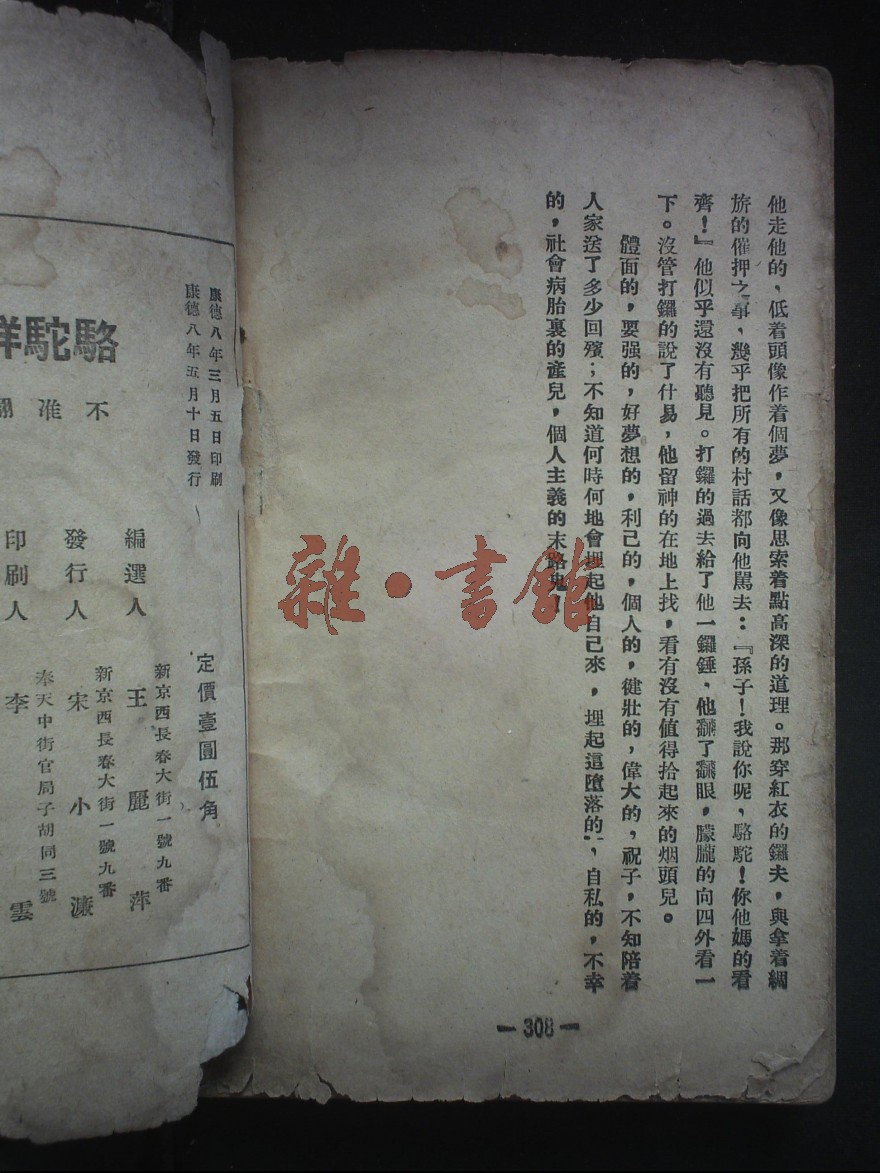 他走他的、低着頭像作着個夢，又像思索着點高深的道理。那穿紅衣的鑼夫，與拿着綢
旂的催押之事、幾乎把所有的村話都向他駡去：『孫子！我說你呢、駱駝！你他媽的看
齊！』他似乎還沒有聽見。打鑼的過去給了他一鑼錘、他翻了翻眼，朦朧的向四外看一
下。沒管打鑼的說了什易，他留神的在地上找，看有沒有值得拾起來的烟頭兒。
體面的，要强的，好夢想的，利己的，個人的，健壯的，偉大的，祝子，不知陪着
人家送了多少回殯；不知道何時何地會埋起他自己來，埋起這墮落的，自私的，不幸
的，社會病胎裏的產兒，個人主義的末路鬼！
— 308 —
雜·書館
康德八年三月五日印刷
康德八年五月十日發行
駱駝祥
不准翻
定價壹圓伍角
新京西長春大街一號九番
編選人 王麗萍
新京西長春大街一號九番
發行人 宋小濂
奉天中街官局子胡同三號
印刷人 李 雲